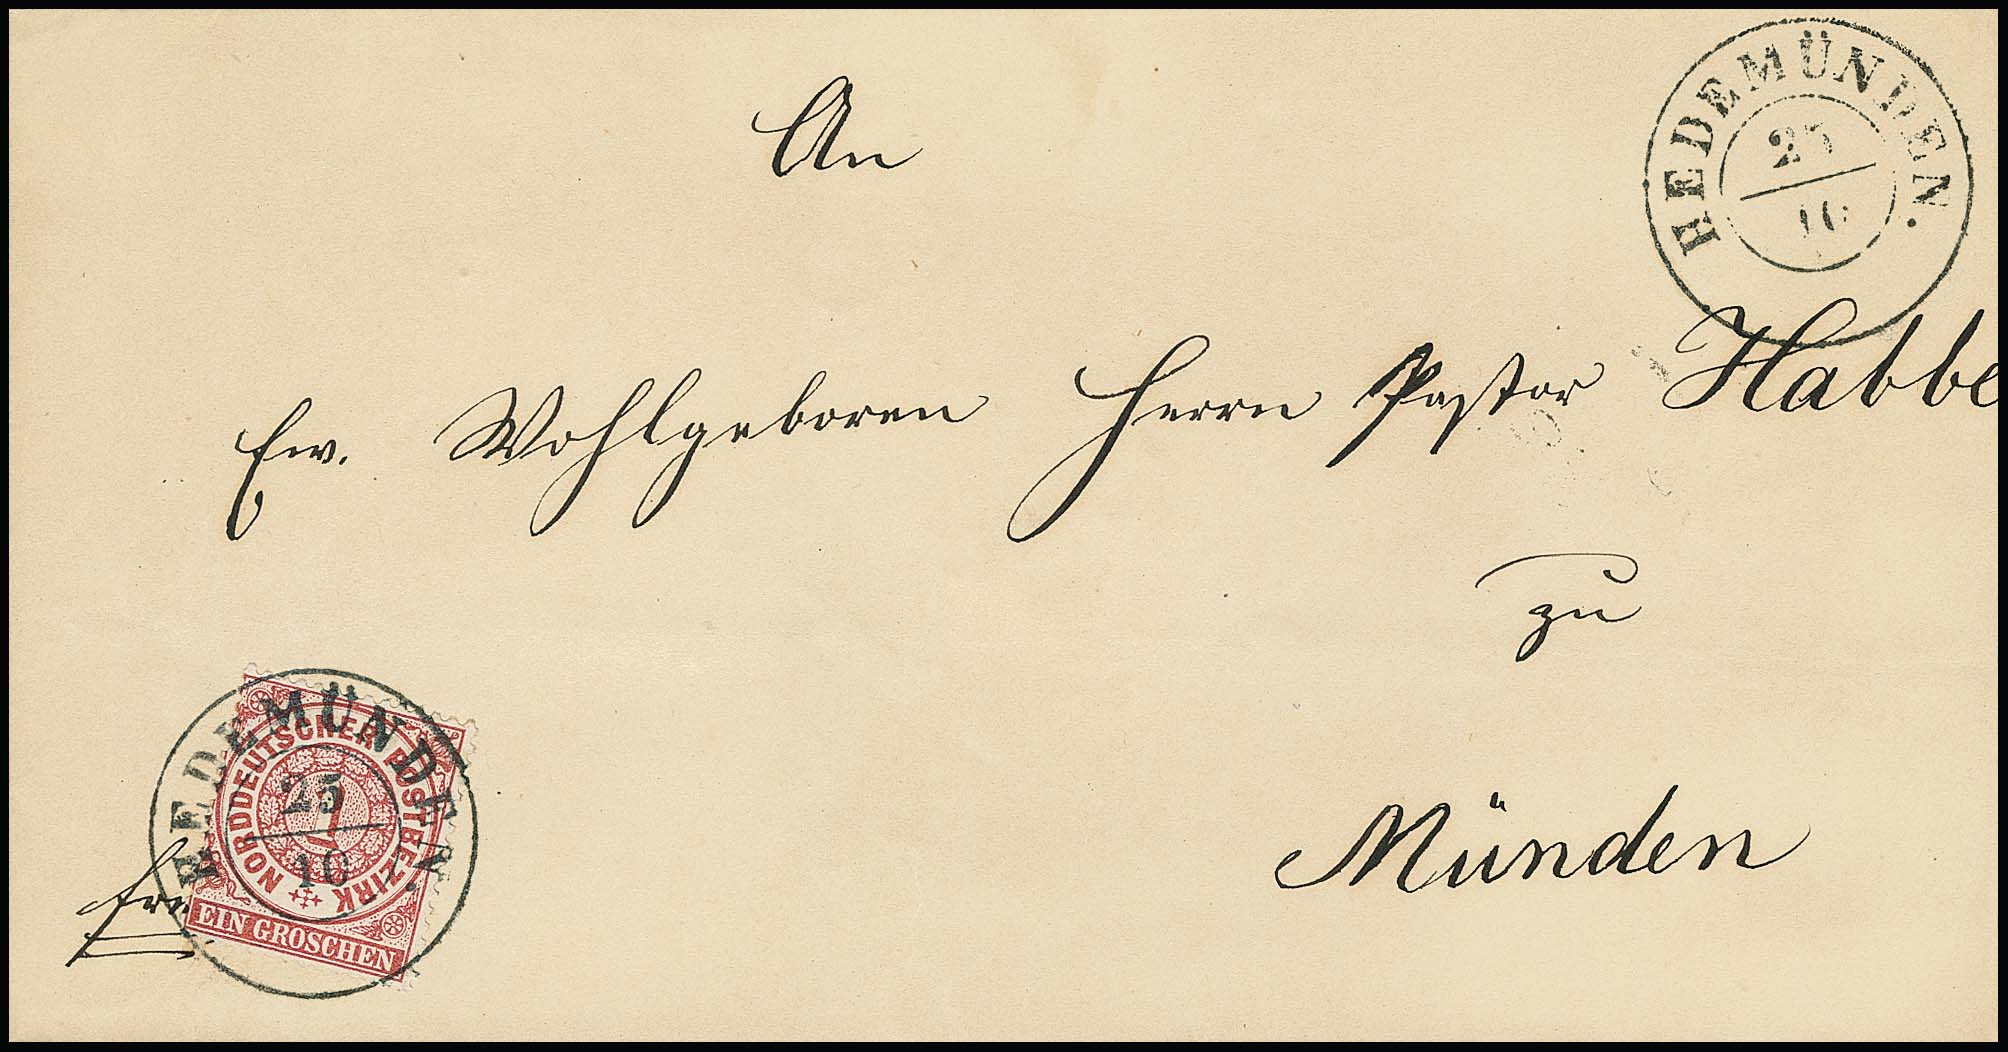 HEDEMÜNDEN.
25
10
An
Ew. Wohlgeboren Herrn Pastor Habbe
zu
Münden
HEDEMÜNDEN.
25
10
NORDDEUTSCHER POSTBEZIRK
1
EIN GROSCHEN